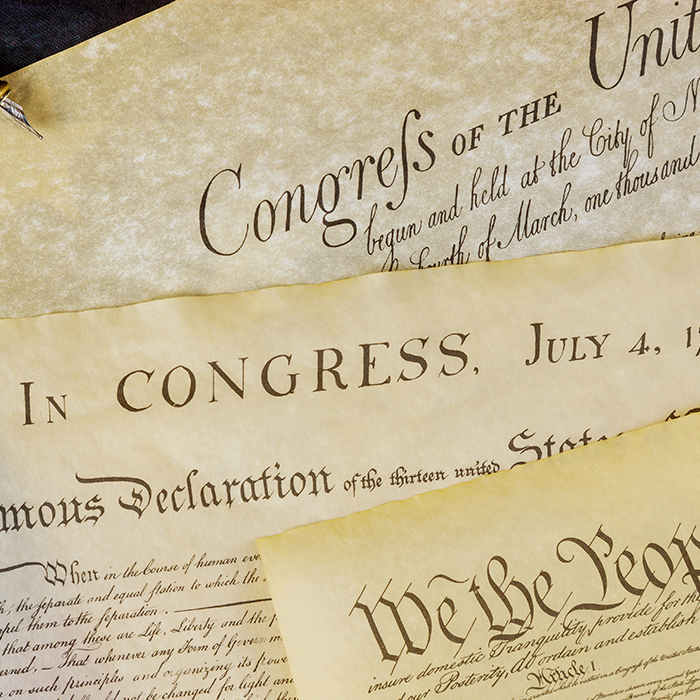 Congreſs OF THE Unit
begun and held at the City of N
Fourth of March, one thousand
In CONGRESS, July 4, 1
mous Declaration of the thirteen united State
When in the Course of human eve
the ſeparate and equal ſtation to which the
pel them to the ſeparation.
that among these are Life, Liberty and the p
rned, — That whenever any Form of Governm
on such principles and organizing its powe
not be changed for light and
We the Peop
insure domestic Tranquility, provide for the
our Posterity, do ordain and establish
Article I